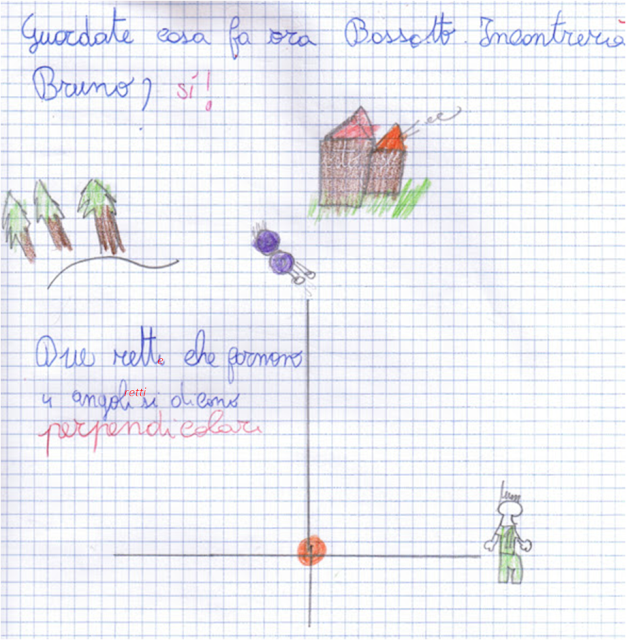 Guardate cosa fa ora Bossotto. Incontrerà
Bruno? sí!
Due rette che formano
4 angoli retti si dicono
perpendicolari